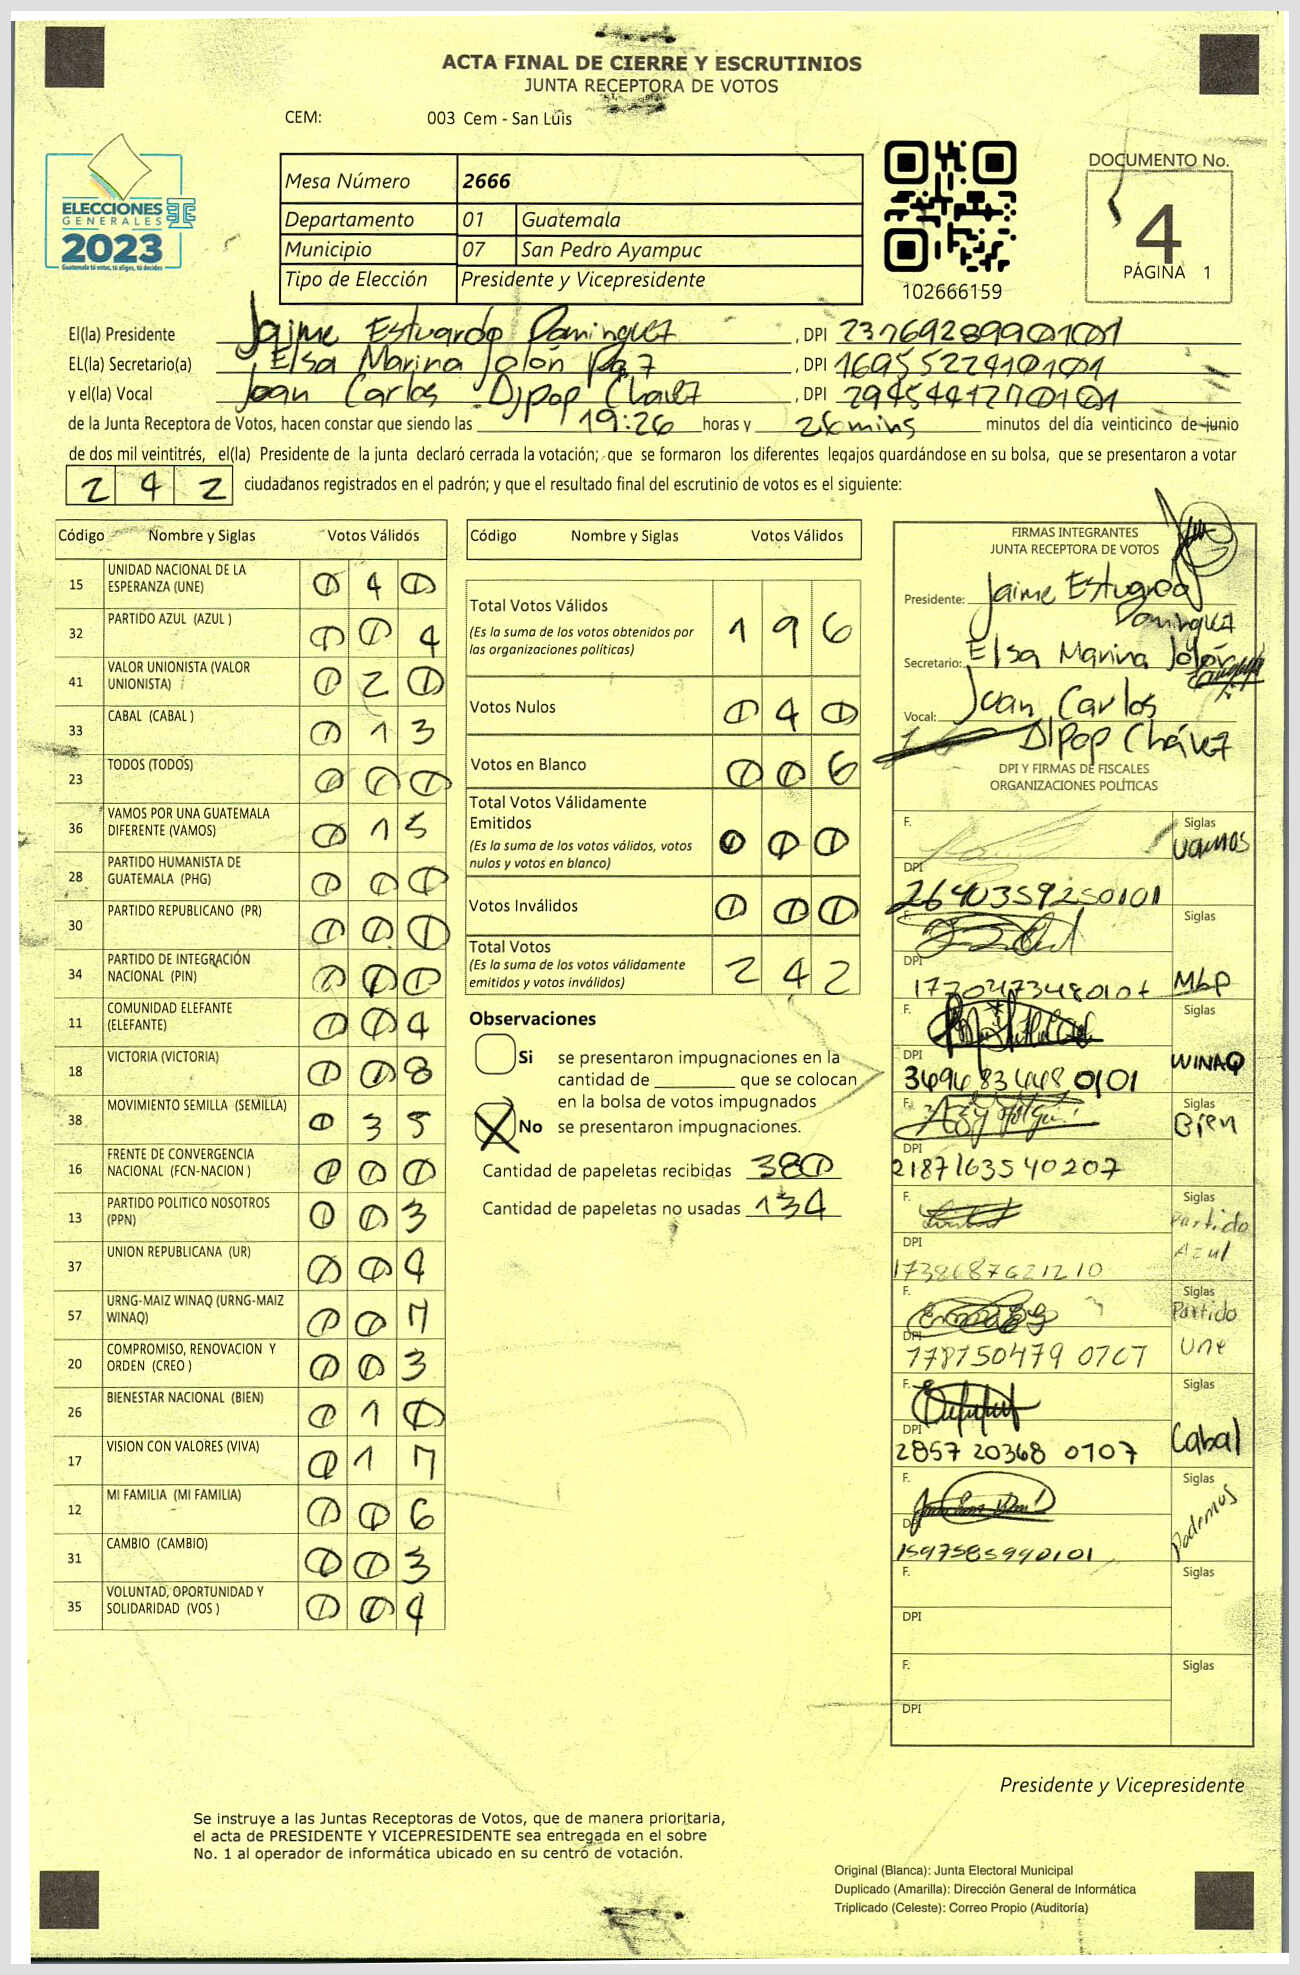 ACTA FINAL DE CIERRE Y ESCRUTINIOS
JUNTA RECEPTORA DE VOTOS
CEM: 003 Cem - San Luis
ELECCIONES
GENERALES
2023
Guatemala tú votas, tú eliges, tú decides
Mesa Número 2666
Departamento 01 Guatemala
Municipio 07 San Pedro Ayampuc
Tipo de Elección Presidente y Vicepresidente
102666159
DOCUMENTO No.
4
PÁGINA 1
El(la) Presidente Jaime Estuardo Dominguez , DPI 2376928990101
EL(la) Secretario(a) Elsa Marina Jolón Paz , DPI 1695522410101
y el(la) Vocal Juan Carlos DJpop Chavez , DPI 2945441270101
de la Junta Receptora de Votos, hacen constar que siendo las 19:26 horas y 26 mins minutos del día veinticinco de junio
de dos mil veintitrés, el(la) Presidente de la junta declaró cerrada la votación; que se formaron los diferentes legajos quardándose en su bolsa, que se presentaron a votar
242 ciudadanos registrados en el padrón; y que el resultado final del escrutinio de votos es el siguiente:
Código Nombre y Siglas Votos Válidos
15 UNIDAD NACIONAL DE LA ESPERANZA (UNE) 0 4 0
32 PARTIDO AZUL (AZUL ) 0 0 4
41 VALOR UNIONISTA (VALOR UNIONISTA) 0 2 0
33 CABAL (CABAL ) 0 1 3
23 TODOS (TODOS) 0 0 0
36 VAMOS POR UNA GUATEMALA DIFERENTE (VAMOS) 0 1 5
28 PARTIDO HUMANISTA DE GUATEMALA (PHG) 0 0 0
30 PARTIDO REPUBLICANO (PR) 0 0 0
34 PARTIDO DE INTEGRACIÓN NACIONAL (PIN) 0 0 0
11 COMUNIDAD ELEFANTE (ELEFANTE) 0 0 4
18 VICTORIA (VICTORIA) 0 0 8
38 MOVIMIENTO SEMILLA (SEMILLA) 0 3 5
16 FRENTE DE CONVERGENCIA NACIONAL (FCN-NACION ) 0 0 0
13 PARTIDO POLITICO NOSOTROS (PPN) 0 0 3
37 UNION REPUBLICANA (UR) 0 0 4
57 URNG-MAIZ WINAQ (URNG-MAIZ WINAQ) 0 0 7
20 COMPROMISO, RENOVACION Y ORDEN (CREO ) 0 0 3
26 BIENESTAR NACIONAL (BIEN) 0 1 0
17 VISION CON VALORES (VIVA) 0 1 7
12 MI FAMILIA (MI FAMILIA) 0 0 6
31 CAMBIO (CAMBIO) 0 0 3
35 VOLUNTAD, OPORTUNIDAD Y SOLIDARIDAD (VOS ) 0 0 4
Código Nombre y Siglas Votos Válidos
Total Votos Válidos 1 9 6
(Es la suma de los votos obtenidos por las organizaciones políticas)
Votos Nulos 0 4 0
Votos en Blanco 0 0 6
Total Votos Válidamente Emitidos 0 0 0
(Es la suma de los votos válidos, votos nulos y votos en blanco)
Votos Inválidos 0 0 0
Total Votos 2 4 2
(Es la suma de los votos válidamente emitidos y votos inválidos)
Observaciones
Si se presentaron impugnaciones en la
cantidad de ________ que se colocan
en la bolsa de votos impugnados
X No se presentaron impugnaciones.
Cantidad de papeletas recibidas 380
Cantidad de papeletas no usadas 134
FIRMAS INTEGRANTES
JUNTA RECEPTORA DE VOTOS
Presidente: Jaime Estuardo
Dominguez
Secretario: Elsa Marina Jolón
Vocal: Juan Carlos
DJpop Chávez
DPI Y FIRMAS DE FISCALES
ORGANIZACIONES POLÍTICAS
F. Siglas
Vamos
DPI
2640359250101
F. Siglas
DPI
MLP
F. Siglas
WINAQ
DPI
3494834480101
F. Siglas
Bien
DPI
2187163540207
F. Siglas
Partido
Azul
DPI
F. Siglas
Partido
Une
DPI
F. Siglas
Cabal
DPI
2857 20368 0107
F. Siglas
Podemos
DPI
1597585990101
F. Siglas
DPI
F. Siglas
DPI
Presidente y Vicepresidente
Se instruye a las Juntas Receptoras de Votos, que de manera prioritaria,
el acta de PRESIDENTE Y VICEPRESIDENTE sea entregada en el sobre
No. 1 al operador de informática ubicado en su centro de votación.
Original (Blanca): Junta Electoral Municipal
Duplicado (Amarilla): Dirección General de Informática
Triplicado (Celeste): Correo Propio (Auditoría)